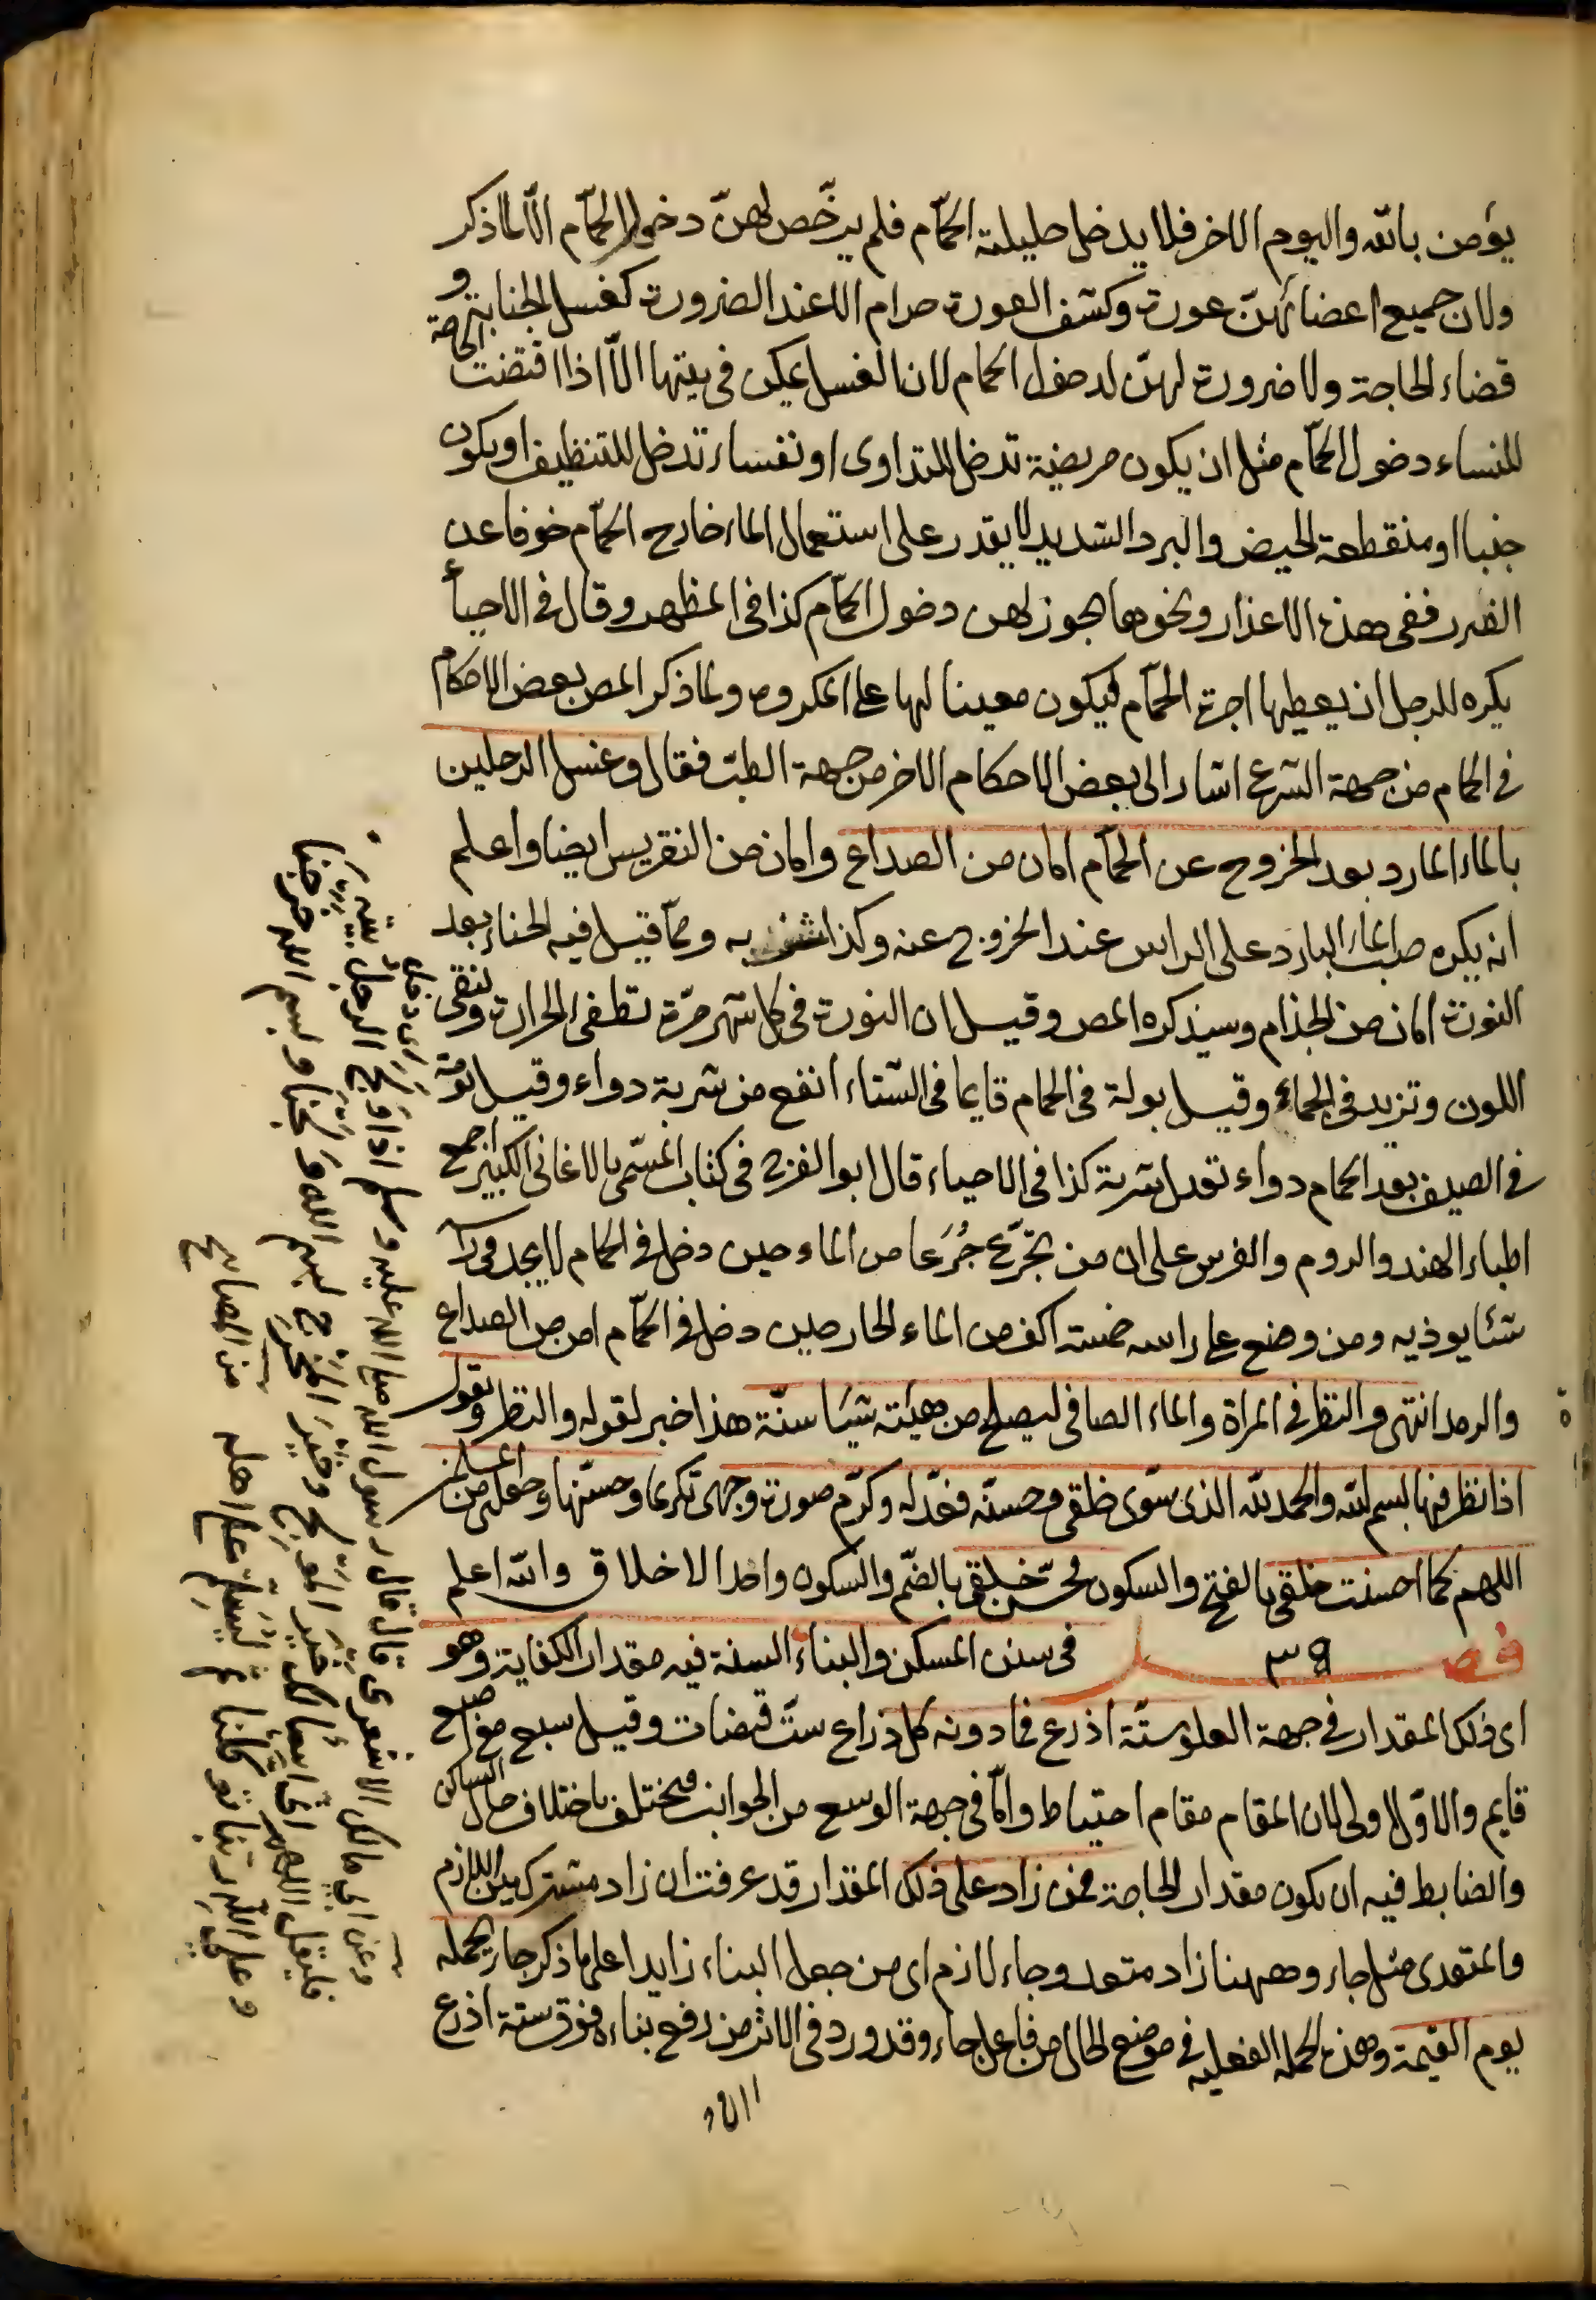 يؤمن بالله واليوم الاخر فلا يدخل حليلته الحمّام فلم يرخّص لهنّ دخول الحمّام الّا لما ذكر
ولان جميع اعضائهنّ عورة وكشف العورة حرام الا عند الضرورة كغسل الجنابة و
قضاء الحاجة ولا ضرورة لهنّ لدخول الحمام لان الغسل يمكن في بيتها الّا اذا اقتضت الحاجة
للنساء دخول الحمّام مثل ان يكون مريضة تدخل للتداوى او نفساء تدخل للتنظيف او يكون
جنبا او منقطعة الحيض والبرد الشديد لا يقدر على استعمال الماء خارج الحمّام خوفا عن
الضرر ففى هذه الاعذار ونحوها يجوز لهن دخول الحمّام كذا في المظهر وقال في الاحياء
يكره للرجل ان يعطيها اجرة الحمّام فيكون معينا لها على المكروه ولما ذكر المص بعض الاحكام
في الحمام من جهة الشرع اشار الى بعض الاحكام الاخر من جهة الطبّ فقال وغسل الرجلين
بالماء البارد بعد الخروج عن الحمّام امان من الصداع وامان من النقريس ايضا واعلم
انه يكره صبّ الماء البارد على الراس عند الخروج عنه وكذا شربه وممّا قيل فيه الحناء بعد
النورة امان من الجذام وسيذكره المص وقيل ان النورة في كل شهر مرّة تطفى الحرارة وتنقى
اللون وتزيد في الجماع وقيل بولة في الحمام قايما في الشتاء انفع من شربة دواء وقيل نومة
في الصيف بعد الحمام دواء تعدل شربة كذا في الاحياء قال ابو الفرج في كتاب المسمّى بالاغانى الكبير اجمع
اطباء الهند والروم والفرس على ان من تجرّع جُرَعا من الماء حين دخل في الحمام لا يجد في
شئا يوذيه ومن وضع على راسه خمسة اكف من الماء الحار حين دخل في الحمّام امن من الصداع
والرمد انتهى والنظر في المراة والماء الصافى ليصلح من هيئته شيئا سنّة هذا خبر لقوله والنظر ويقول
اذا نظر فيها بسم الله والحمد لله الذى سوّى خلقى وحسنه فعدّله وكرّم صورة وجهى تكريما وحسّنها وجعلنى من المسلمين
اللهم كما احسنت خلقى بالفتح والسكون فحسّن خلقى بالضم والسكون واحد الاخلاق والله اعلم
فصل ٣٩ في سنن المسكن والبناء السنة فيه مقدار الكفاية وهو
اى ذلك المقدار في جهة العلو ستّة اذرع فما دونه كل ذراع ستّ قبضات وقيل سبع مع اصبع
قايم والاوّل اولى لان المقام مقام احتياط وامّا في جهة الوسع من الجوانب فيختلف باختلاف حال الساكن
والضابط فيه ان يكون مقدار الحاجة فمن زاد على ذلك المقدار قد عرفت ان زاد مشترك بين اللازم
والمتعدى مثل جاء وههنا زاد متعد وجاء لازم اى من جعل البناء زايدا على ما ذكر جاء يحمله
يوم القيمة وهذه الجملة الفعلية في موضع الحال من فاعل جاء وقد ورد في الاثر من رفع بناءه فوق ستة اذرع
وعن ابى مالك الاشعرى قال قال رسول الله صلى الله عليه وسلم اذا ولج الرجل بيته
اى دخل
فليقل اللهم انى اسألك خير المولج وخير المخرج بسم الله ولجنا وبسم الله خرجنا
وعلى الله ربنا توكلنا ثم ليسلّم على اهله من المصابيح